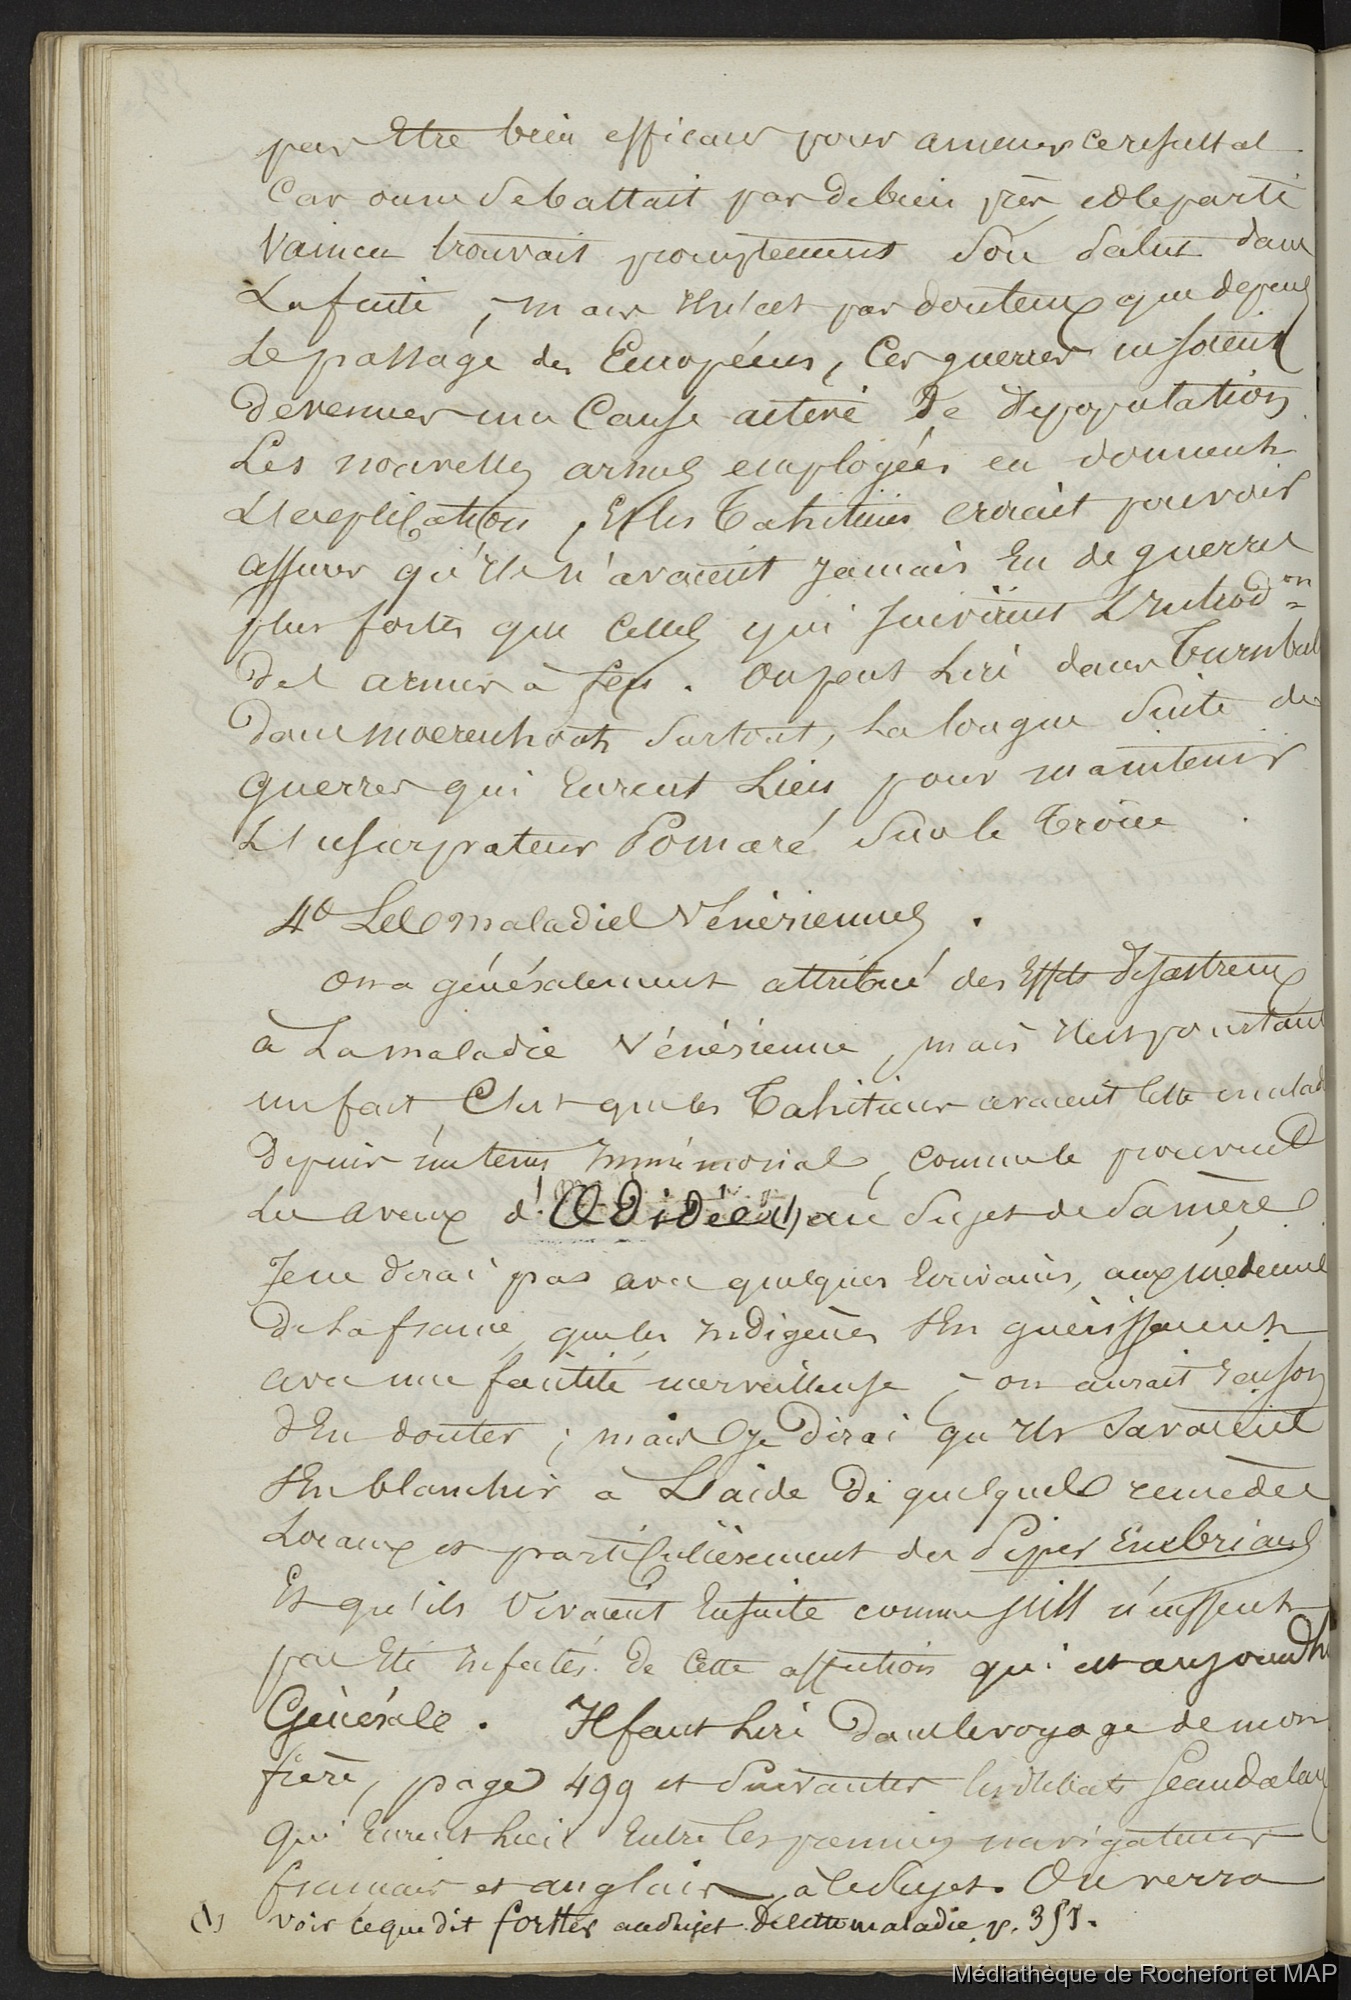 pas Etre bien efficaces pour amener ce resultat
Car on ne se battait pas de bien près, et le parti
Vaincu trouvait promptement son salut dans
La fuite ; mais il n'est pas douteux que depuis
Le passage des Européens, Ces guerres ne soient
devenues une Cause active de dépopulation
Les nouvelles armes employées en donnent
L'explication, Et les Tahitiens croient pouvoir
assurer qu'ils n'avaient jamais Eu de guerres
plus fortes que celles qui suivirent L'introd.on
des armes à feu. On peut Lire dans Turnbul
dans moerenhout surtout, La longue suite de
guerres qui Eurent Lieu pour maintenir
L'usurpateur Pomaré sur le trône
4o Les maladies Vénériennes.
On a généralement attribué des Effets désastreux
à La maladie Vénérienne, mais il est pourtant
un fait C'est que les Tahitiens avaient cette malad
depuis un tems immémorial, comme le prouvent
Les aveux d'Œdidée (1) au sujet de sa mère
Je ne dirai pas avec quelques Ecrivains, aux médecins
de La france, que les indigènes s'En guérissaient
avec une facilité merveilleuse ; on aurait raison
d'En douter ; mais je dirai qu'ils savaient
s'En blanchir à L'aide de quelques remèdes
Locaux et particulièrement du Piper Enebrians
Et qu'ils Vivaient Ensuite comme s'ils n'eussent
pas Eté infectés de cette affection qui est aujourd'h
Générale. Il faut Lire dans le voyage de mon
frère, page 499 et suivantes les débats scandaleux
qui Eurent Lieu Entre les premiers navigateurs
français et anglais à ce sujet. On verra
(1) voir ce que dit forster au sujet de cette maladie, p. 351.
Médiathèque de Rochefort et MAP